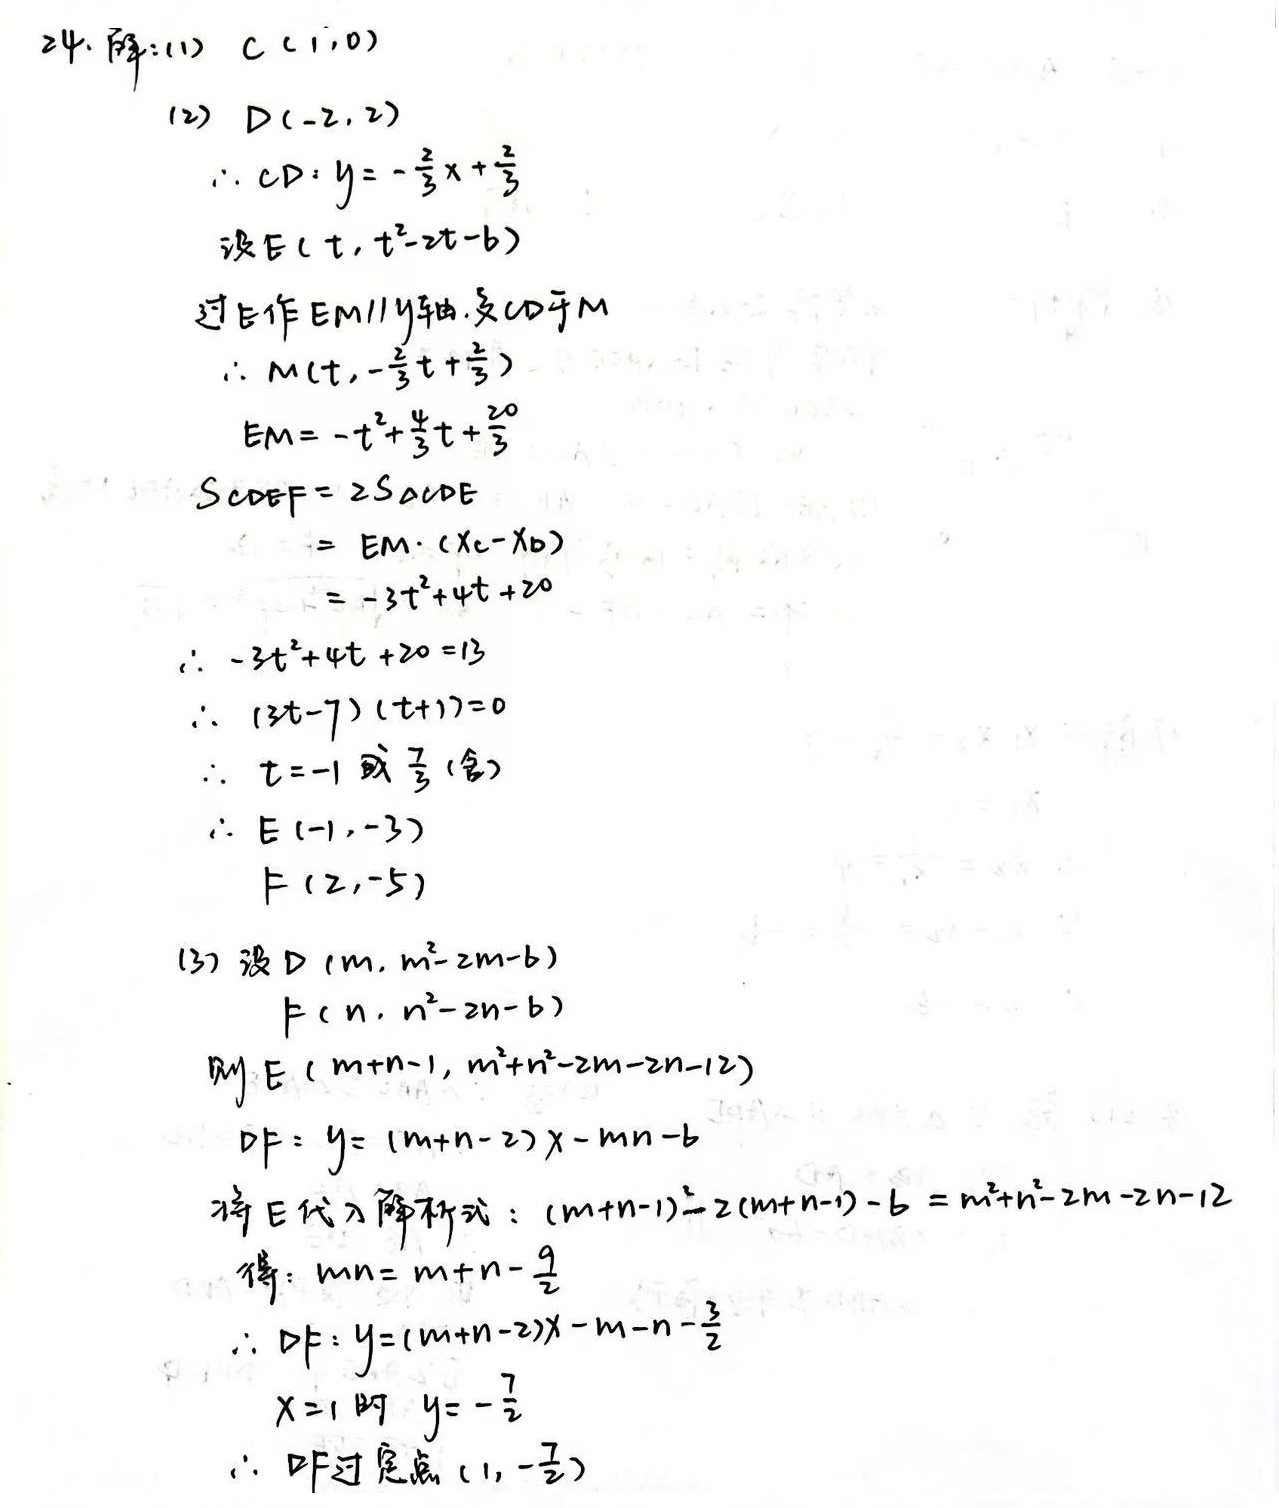 24. 解:(1) C(1,0)
(2) D(-2,2)
∴ CD: y = -2/3 x + 2/3
设E(t, t²-2t-6)
过E作EM//y轴.交CD于M
∴ M(t, -2/3 t + 2/3)
EM = -t² + 4/3 t + 20/3
SCDEF = 2S△CDE
= EM·(xC-xD)
= -3t²+4t+20
∴ -3t²+4t+20=13
∴ (3t-7)(t+1)=0
∴ t=-1 或 7/3 (舍)
∴ E(-1,-3)
F(2,-5)
(3) 设D(m, m²-2m-6)
F(n, n²-2n-6)
则E(m+n-1, m²+n²-2m-2n-12)
DF: y=(m+n-2)x-mn-6
将E代入解析式: (m+n-1)²-2(m+n-1)-6 = m²+n²-2m-2n-12
得: mn=m+n-9/2
∴ DF: y=(m+n-2)x-m-n-3/2
x=1时 y=-7/2
∴ DF过定点(1,-7/2)